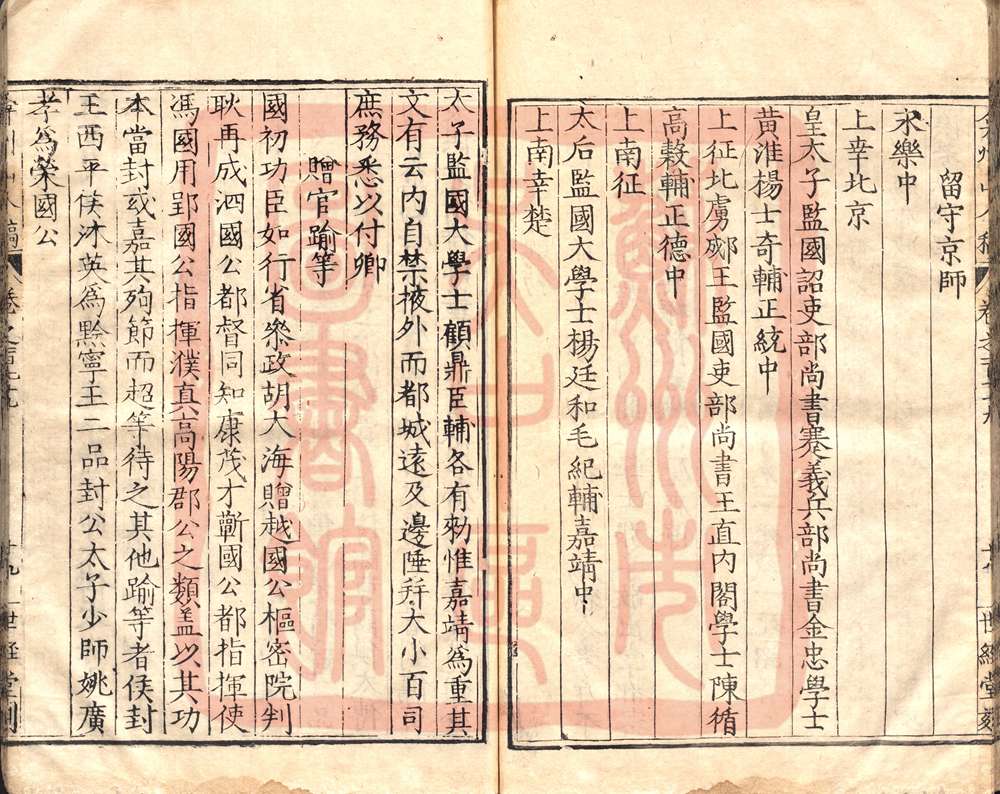 留守京師
永樂中
上幸北京
皇太子監國詔吏部尚書蹇義兵部尚書金忠學士
黄淮楊士奇輔正統中
上征北虜郕王監國吏部尚書王直内閣學士陳循
高穀輔正德中
上南征
太后監國大學士楊廷和毛紀輔嘉靖中
上南幸楚
太子監國大學士顧鼎臣輔各有勑惟嘉靖爲重其
文有云内自禁掖外而都城遠及邊陲并大小百司
庶務悉以付卿
贈官踰等
國初功臣如行省叅政胡大海贈越國公樞密院判
耿再成泗國公都督同知康茂才蘄國公都指揮使
馮國用郢國公指揮濮真高陽郡公之類盖以其功
本當封或嘉其殉節而超等待之其他踰等者侯封
王西平侯沐英爲黔寧王二品封公太子少師姚廣
孝爲榮國公
世經堂刻
蘇州
圖書館